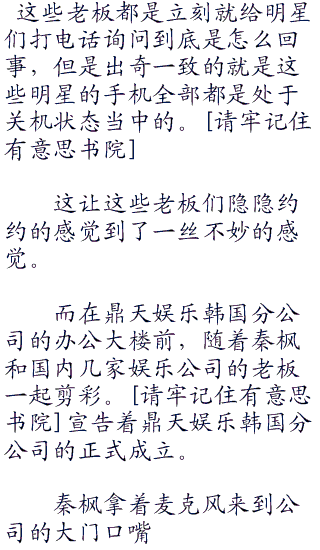 这些老板都是立刻就给明星
们打电话询问到底是怎么回
事，但是出奇一致的就是这
些明星的手机全部都是处于
关机状态当中的。[请牢记住
有意思书院]
这让这些老板们隐隐约
约的感觉到了一丝不妙的感
觉。
而在鼎天娱乐韩国分公
司的办公大楼前，随着秦枫
和国内几家娱乐公司的老板
一起剪彩。[请牢记住有意思
书院]宣告着鼎天娱乐韩国分
公司的正式成立。
秦枫拿着麦克风来到公
司的大门口嘴